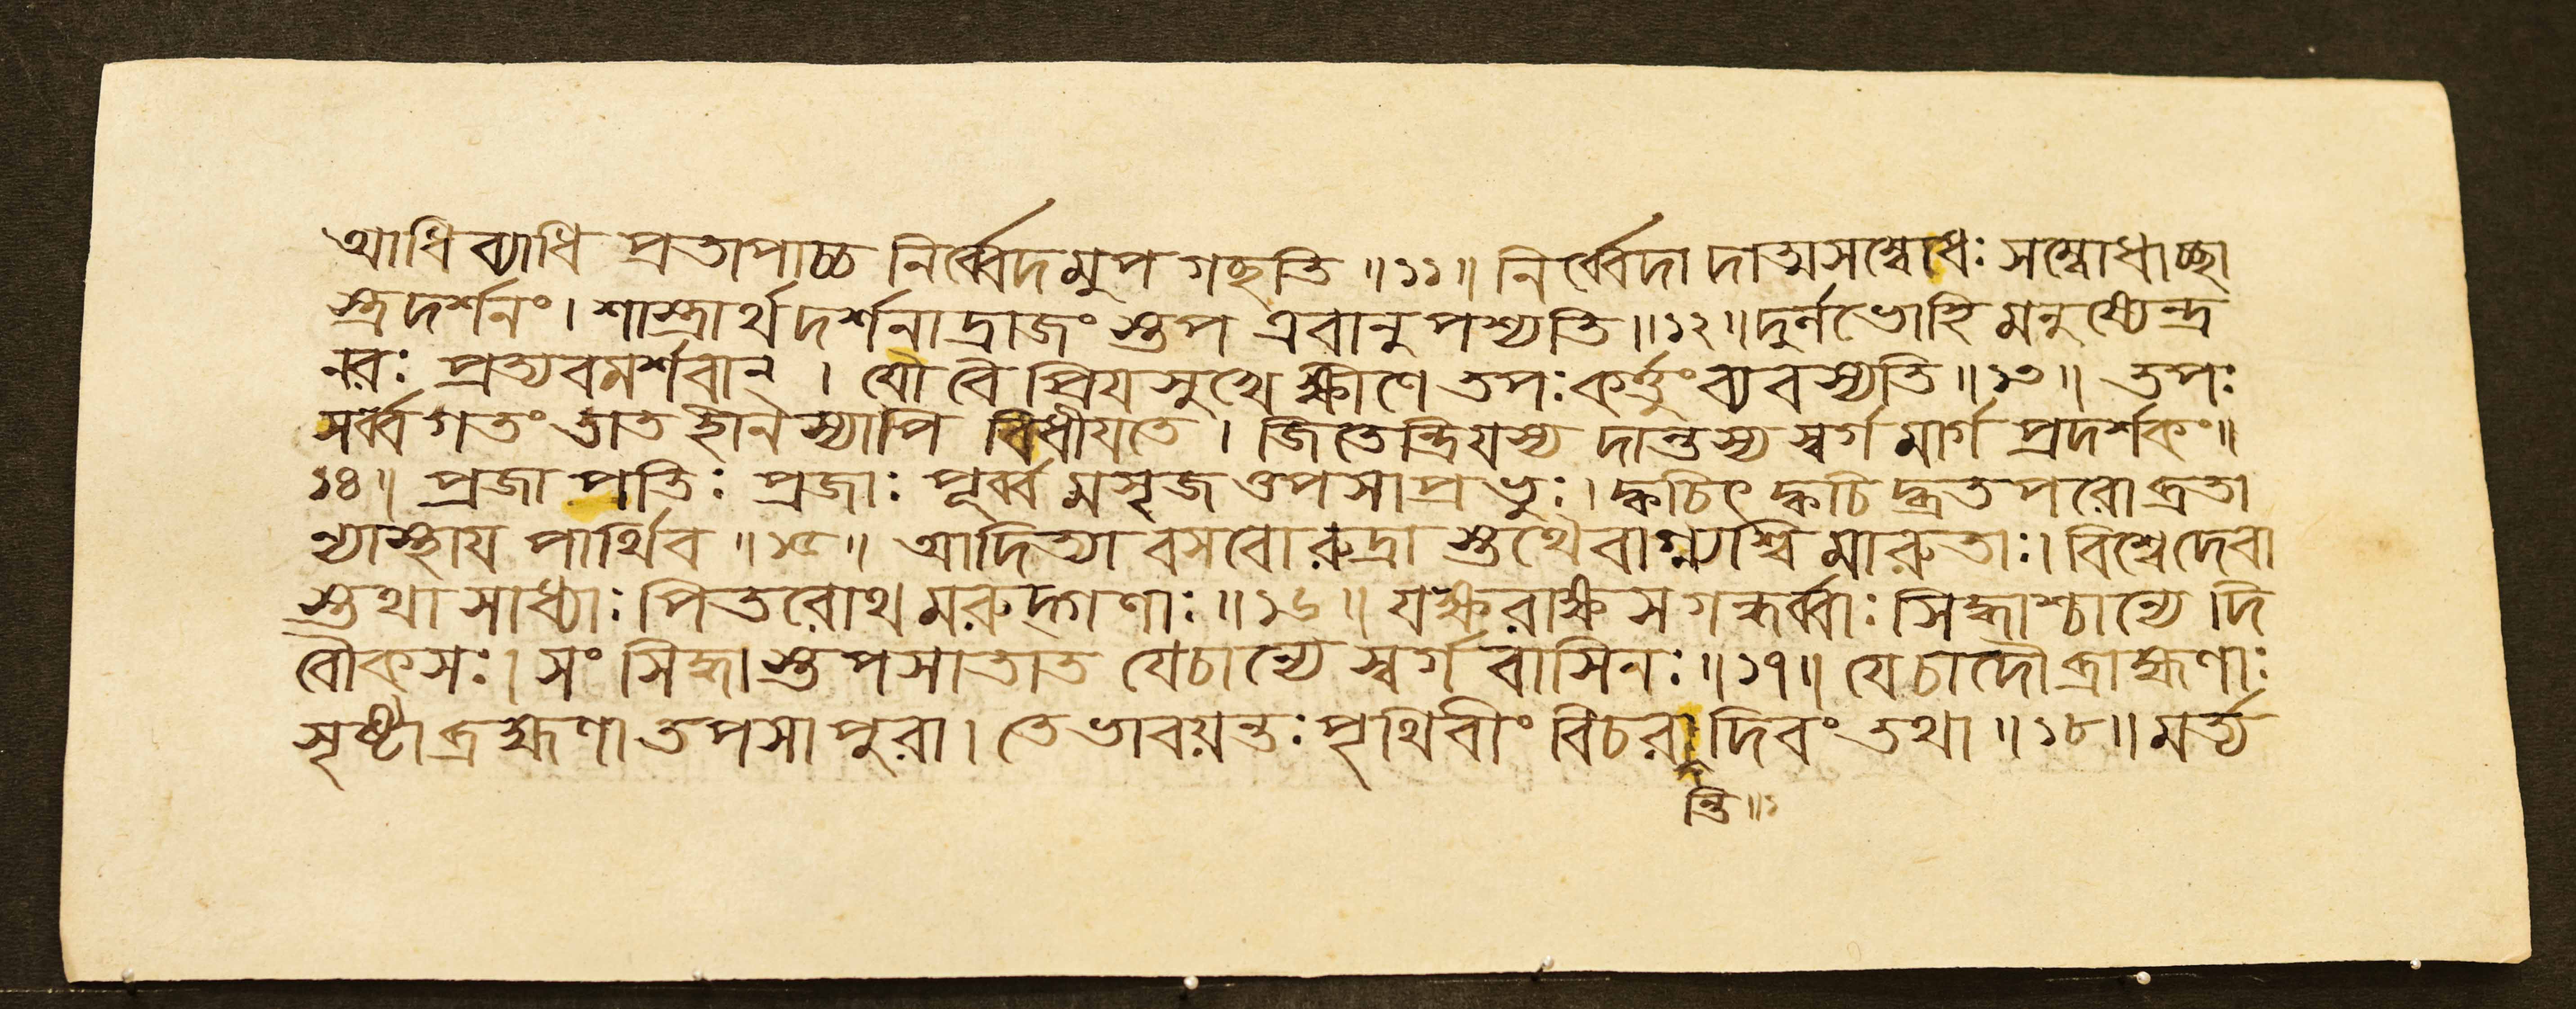 আধিব্যাধি প্রতাপাচ্চ নির্ব্বেদমুপগচ্ছতি ॥১১॥ নির্ব্বেদাদাত্মসম্বোধঃ সম্বোধাচ্ছা
স্ত্রদর্শনং। শাস্ত্রার্থদর্শনাদ্রাজংস্তপ এবানুপশ্যতি ॥১২॥ দুর্লভোহি মনুষ্যেন্দ্র
নরঃ প্রত্যবমর্শবান্ । যো বৈ প্রিয়সুখে ক্ষীণে তপঃকর্ত্তুং ব্যবস্যতি ॥১৩॥ তপঃ
সর্ব্বগতং তাত হীনস্যাপি বিধীয়তে । জিতেন্দ্রিয়স্য দান্তস্য স্বর্গমার্গ প্রদর্শকং॥
১৪॥ প্রজাপতিঃ প্রজাঃ পূর্ব্বমসৃজত্তপসাপ্রভুঃ। ক্বচিৎ ক্বচিদ্ব্রতপরো ব্রতা
ন্যাস্থায় পার্থিব ॥১৫॥ আদিত্যা বসবো রুদ্রাস্তথৈবাগ্ন্যশ্বি মারুতাঃ। বিশ্বেদেবা
স্তথা সাধ্যাঃ পিতরোথ মরুদ্গণাঃ ॥১৬॥ যক্ষরাক্ষস গন্ধর্ব্বাঃ সিদ্ধাশ্চান্যে দি
বৌকসঃ। সংসিদ্ধাস্তপসা তাত যেচান্যে স্বর্গবাসিনঃ ॥১৭॥ যেচাদৌ ব্রাহ্মণাঃ
সৃষ্টা ব্রহ্মণা তপসা পুরা। তে ভাবয়ন্তঃ পৃথিবীং বিচর দিবং তথা ॥১৮॥ মর্ত্ত্য
ন্তি॥